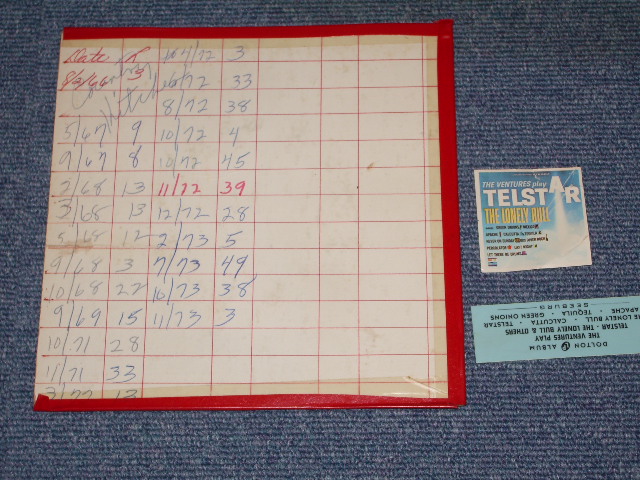 Date 10/72 3
8/2/66 3 10/72 33
Country 8/72 38
5/67 9 10/72 4
9/67 8 10/72 45
2/68 13 11/72 39
3/68 13 12/72 28
5/68 12 2/73 5
9/68 3 7/73 49
10/68 22 10/73 38
9/69 15 11/73 3
10/71 28
11/71 33
THE VENTURES play
TELSTAR
THE LONELY BULL
DOLTON ALBUM
THE VENTURES PLAY
TELSTAR · THE LONELY BULL & OTHERS
THE LONELY BULL · CALCUTTA · TELSTAR
APACHE · TEQUILA · GREEN ONIONS
SEEBURG